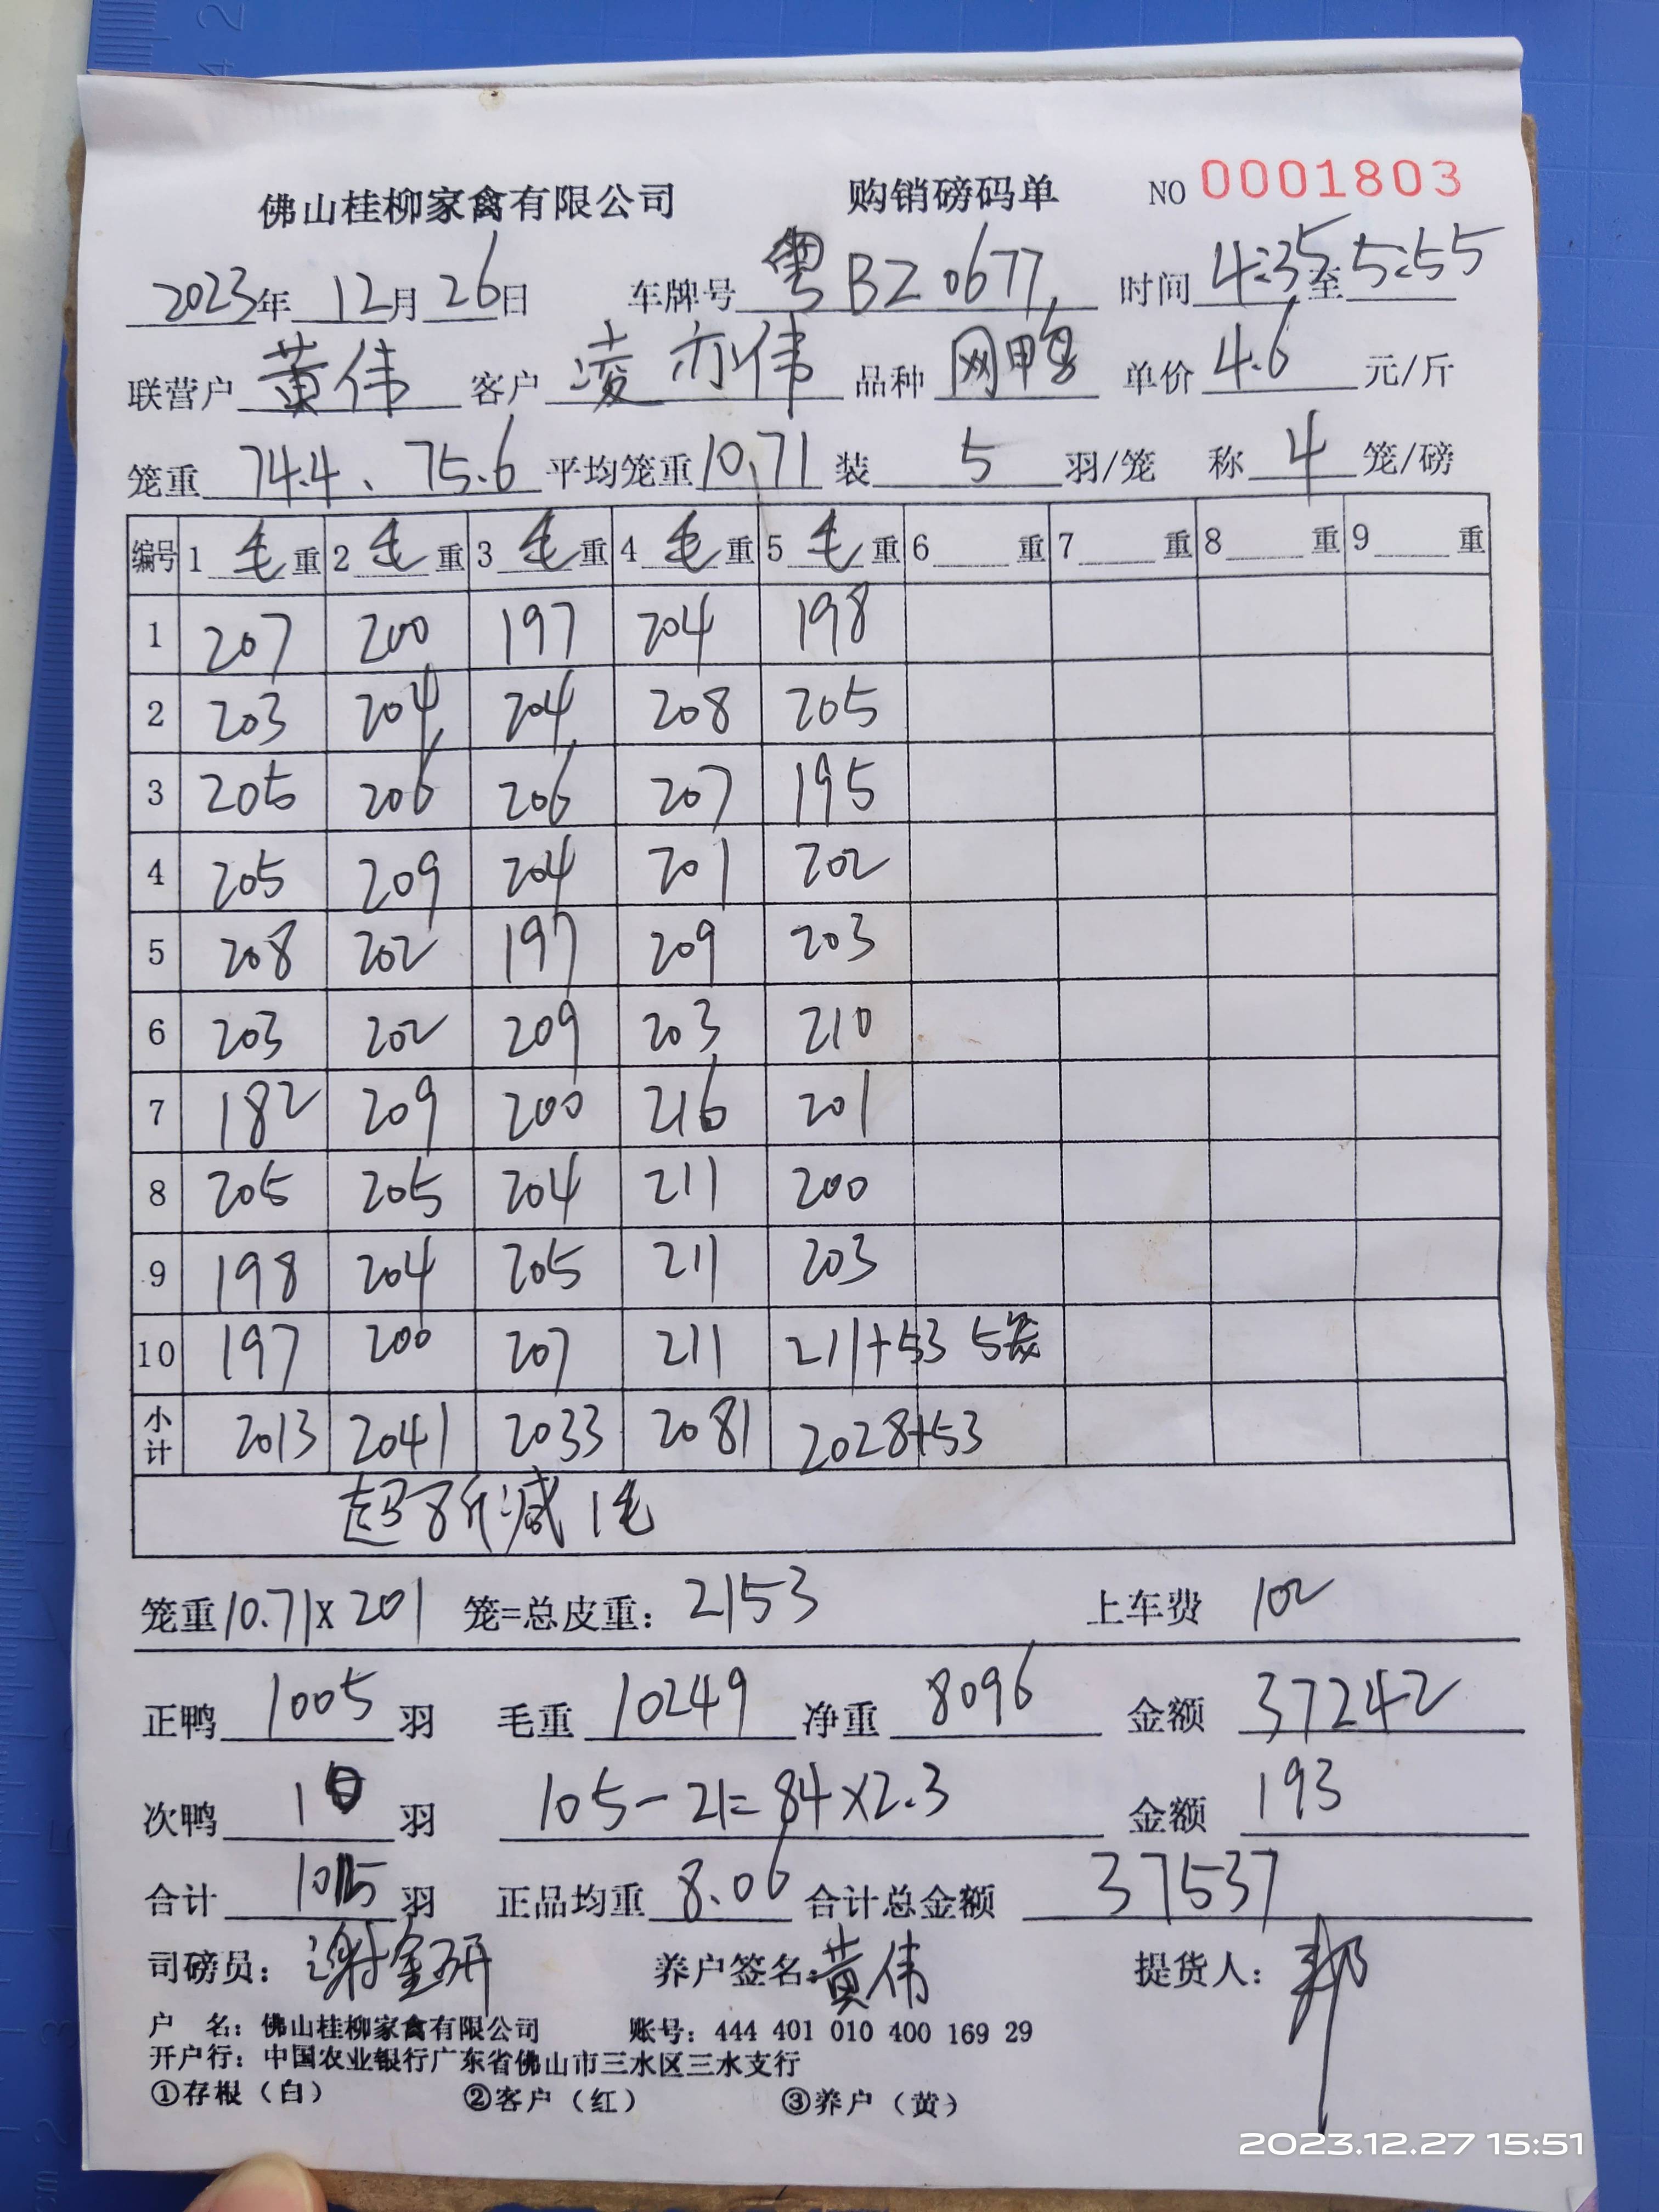 佛山桂柳家禽有限公司 购销磅码单 NO 0001803
2023年 12月 26日 车牌号 粤BZ0677 时间 4:35至5:55
联营户 黄伟 客户 凌亦伟 品种 网鸭 单价 4.6 元/斤
笼重 74.4、75.6 平均笼重 10.71 装 5 羽/笼 称 4 笼/磅
编号 1 毛重 2 毛重 3 毛重 4 毛重 5 毛重 6 重 7 重 8 重 9 重
1 207 200 197 204 198
2 203 204 204 208 205
3 205 206 206 207 195
4 205 209 204 201 202
5 208 202 197 209 203
6 203 202 209 203 210
7 182 209 200 216 201
8 205 205 204 211 200
9 198 204 205 211 203
10 197 200 207 211 211+53 5
小计 2013 2041 2033 2081 2028+53
超8斤减1毛
笼重 10.71×201 笼=总皮重: 2153 上车费 102
正鸭 1005 羽 毛重 10249 净重 8096 金额 37242
次鸭 10 羽 105-21=84×2.3 金额 193
合计 1015 羽 正品均重 8.06 合计总金额 37537
司磅员: 谢金研 养户签名: 黄伟 提货人:
户 名: 佛山桂柳家禽有限公司 账号: 444 401 010 400 169 29
开户行: 中国农业银行广东省佛山市三水区三水支行
①存根（白） ②客户（红） ③养户（黄）
2023.12.27 15:51